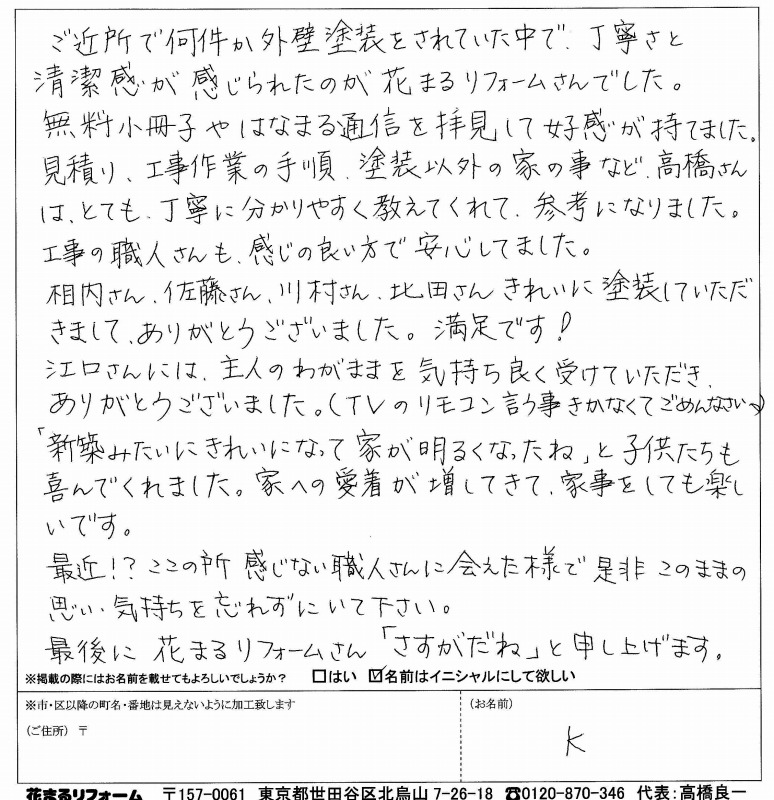 ご近所で何件か外壁塗装をされていた中で、丁寧さと
清潔感が感じられたのが花まるリフォームさんでした。
無料小冊子やはなまる通信を拝見して好感が持てました。
見積り、工事作業の手順、塗装以外の家の事など、高橋さん
は、とても、丁寧に分かりやすく教えてくれて、参考になりました。
工事の職人さんも、感じの良い方で安心してました。
相内さん、佐藤さん、川村さん、北田さんきれいに塗装していただ
きまして、ありがとうございました。満足です!
江口さんには、主人のわがままを気持ち良く受けていただき、
ありがとうございました。(TVのリモコン言う事きかなくてごめんなさい)
「新築みたいにきれいになって家が明るくなったね」と子供たちも
喜んでくれました。家への愛着が増してきて、家事をしても楽し
いです。
最近!?ここの所感じない職人さんに会えた様で是非このままの
思い、気持ちを忘れずにいて下さい。
最後に花まるリフォームさん「さすがだね」と申し上げます。
※掲載の際にはお名前を載せてもよろしいでしょうか? □はい ☑名前はイニシャルにして欲しい
※市・区以降の町名・番地は見えないように加工致します
(ご住所) 〒
(お名前)
K
花まるリフォーム 〒157-0061 東京都世田谷区北烏山 7-26-18 ☎0120-870-346 代表:高橋良一